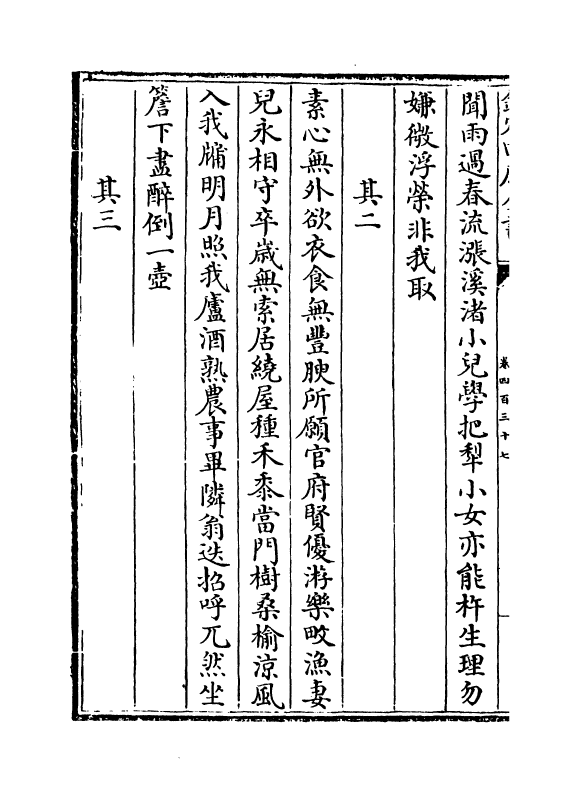 卷四百三十七
聞雨過春流漲溪渚小兒學把犁小女亦能杵生理勿
嫌微浮榮非我取
其二
素心無外欲衣食無豐腴所願官府賢優游樂畋漁妻
兒永相守卒歳無索居繞屋種禾黍當門樹桑榆涼風
入我牖明月照我廬酒熟農事畢隣翁迭招呼兀然坐
簷下盡醉倒一壺
其三